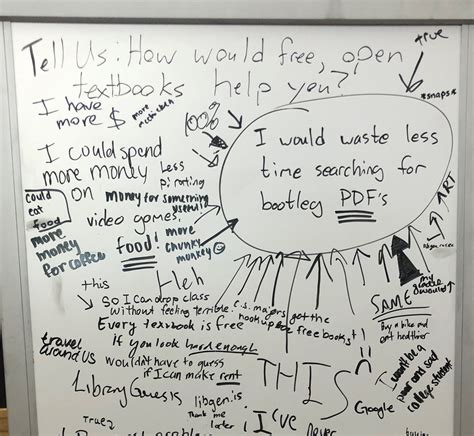 Tell Us: How would free, open
textbooks help you?
true
*snaps*
I have
more $
100%
I could spend
more money
on
video games,
Less
pirating
money for something
useful!
food!
more
chunky
monkey
could
eat
food
more
money
for coffee
I would waste less
time searching for
bootleg PDF's
↑ RT
Heh
this
So I can drop class
without feeling terrible.
c.s. majors get the
hook up 4 free books!
Every textbook is free
if you look hard enough
SAME
Buy a bike and
get healthier
travel
around US
wouldn't have to guess
if I can make rent
Library Genesis
libgen.is
Thank me
later
THIS
Google
I won't be a
poor and sad
college student
True2
I've
never